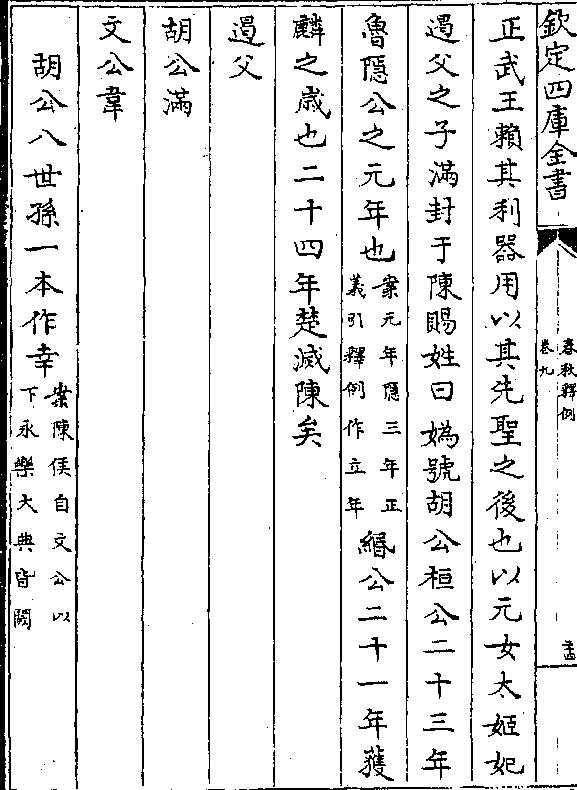 欽定四庫全書
春秋釋例
卷九
二十四
正武王賴其利器用以其先聖之後也以元女太姬妃
遏父之子滿封于陳賜姓曰媯號胡公桓公二十三年
魯隱公之元年也案元年隱三年正義引釋例作立年緡公二十一年獲
麟之歲也二十四年楚滅陳矣
遏父
胡公滿
文公韋
胡公八世孫一本作幸案陳侯自文公以下永樂大典皆闕